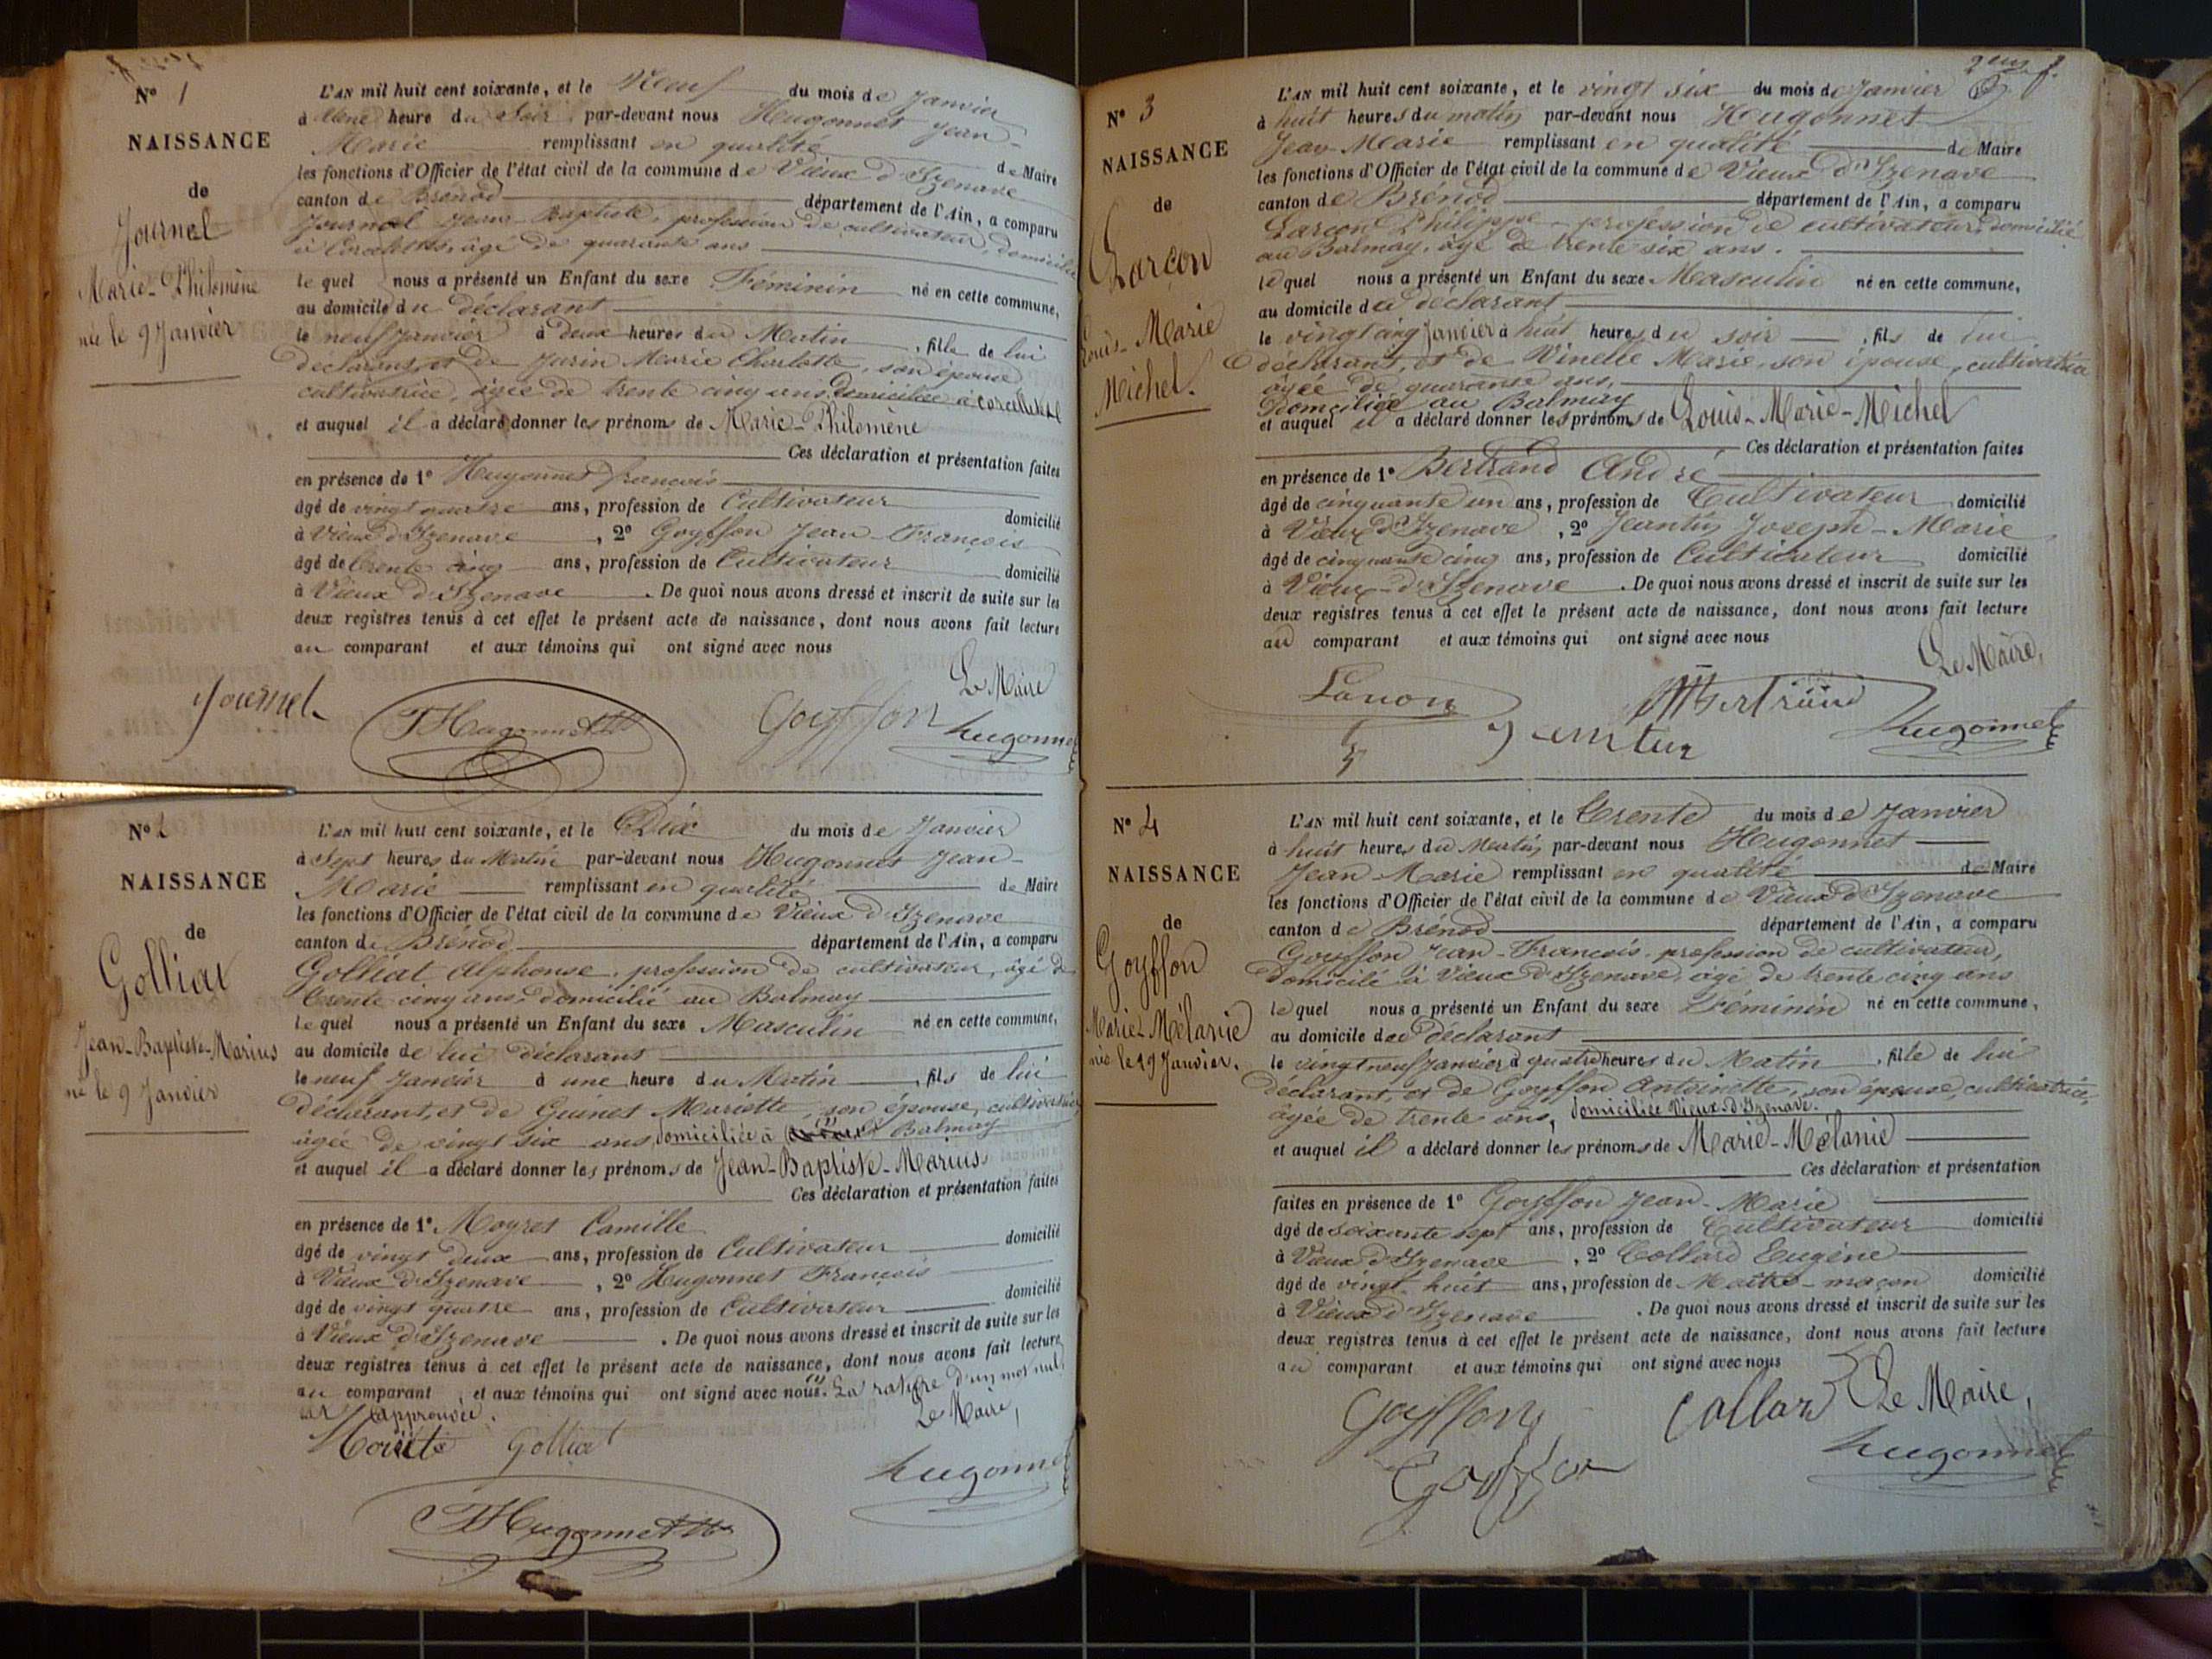 N° 1
NAISSANCE
de
Journel
Marie-Philomène
née le 9 Janvier
L'AN mil huit cent soixante, et le Neuf du mois de Janvier
à Une heure du Soir par-devant nous Hugonnet Jean-
Marie remplissant en qualité de Maire
les fonctions d'Officier de l'état civil de la commune de Vieux d'Izenave
canton de Brénod département de l'Ain, a comparu
Journel Jean-Baptiste, profession de cultivateur, domicilié
à âgé de quarante ans
le quel nous a présenté un Enfant du sexe Féminin né en cette commune,
au domicile du déclarant
le neuf Janvier à deux heures du Matin, fille de lui
déclarant, et de Jarin Marie Charlotte, son épouse
cultivatrice, âgée de trente cinq ans, domiciliée à
et auquel il a déclaré donner les prénoms de Marie-Philomène
Ces déclaration et présentation faites
en présence de 1° Hugonnet François
âgé de vingt quatre ans, profession de Cultivateur domicilié
à Vieux d'Izenave, 2° Goyffon Jean-François
âgé de trente cinq ans, profession de Cultivateur domicilié
à Vieux d'Izenave. De quoi nous avons dressé et inscrit de suite sur les
deux registres tenus à cet effet le présent acte de naissance, dont nous avons fait lecture
au comparant et aux témoins qui ont signé avec nous
Le Maire
Journel
Hugonnet
Goyffon
hugonnet
N° 2
NAISSANCE
de
Golliat
Jean-Baptiste-Marius
né le 9 Janvier
L'AN mil huit cent soixante, et le Dix du mois de Janvier
à Sept heures du Matin par-devant nous Hugonnet Jean-
Marie remplissant en qualité de Maire
les fonctions d'Officier de l'état civil de la commune de Vieux d'Izenave
canton de Brénod département de l'Ain, a comparu
Golliat Alphonse, profession de cultivateur, âgé de
trente cinq ans, domicilié au Balmay
le quel nous a présenté un Enfant du sexe Masculin né en cette commune,
au domicile de lui déclarant
le neuf Janvier à une heure du Matin, fils de lui
déclarant, et de Guinet Mariette, son épouse, cultivatrice
âgée de vingt six ans, domiciliée à Balmay
et auquel il a déclaré donner les prénoms de Jean-Baptiste-Marius
Ces déclaration et présentation faites
en présence de 1° Moyret Camille
âgé de vingt deux ans, profession de Cultivateur domicilié
à Vieux d'Izenave, 2° Hugonnet François
âgé de vingt quatre ans, profession de Cultivateur domicilié
à Vieux d'Izenave. De quoi nous avons dressé et inscrit de suite sur les
deux registres tenus à cet effet le présent acte de naissance, dont nous avons fait lecture
au comparant et aux témoins qui ont signé avec nous. La rature d'un mot nul
est approuvée.
Le Maire,
Golliat
hugonnet
Hugonnet
2me f.
N° 3
NAISSANCE
de
Larçon
Louis-Marie
Michel.
L'AN mil huit cent soixante, et le vingt six du mois de Janvier
à huit heures du matin par-devant nous Hugonnet
Jean-Marie remplissant en qualité de Maire
les fonctions d'Officier de l'état civil de la commune de Vieux d'Izenave
canton de Brénod département de l'Ain, a comparu
Larçon Philippe profession de cultivateur, domicilié
au Balmay, âgé de trente six ans.
le quel nous a présenté un Enfant du sexe Masculin né en cette commune,
au domicile du déclarant
le vingt cinq Janvier à huit heures du soir, fils de lui
déclarant, et de Vinette Marie, son épouse, cultivatrice
âgée de quarante ans,
Domiciliée au Balmay
et auquel il a déclaré donner les prénoms de Louis-Marie-Michel
Ces déclaration et présentation faites
en présence de 1° Bertrand André
âgé de cinquante un ans, profession de Cultivateur domicilié
à Vieux d'Izenave, 2° Jeantin Joseph-Marie
âgé de cinquante cinq ans, profession de Cultivateur domicilié
à Vieux-d'Izenave. De quoi nous avons dressé et inscrit de suite sur les
deux registres tenus à cet effet le présent acte de naissance, dont nous avons fait lecture
au comparant et aux témoins qui ont signé avec nous
Le Maire,
Bertrand
hugonnet
N° 4
NAISSANCE
de
Goyffon
Marie-Mélanie
née le 29 Janvier.
L'AN mil huit cent soixante, et le trente du mois de Janvier
à huit heures du Matin par-devant nous Hugonnet
Jean Marie remplissant en qualité de Maire
les fonctions d'Officier de l'état civil de la commune de Vieux d'Izenave
canton de Brénod département de l'Ain, a comparu
Goyffon Jean-François profession de cultivateur,
Domicilié à Vieux d'Izenave, âgé de trente cinq ans
le quel nous a présenté un Enfant du sexe Féminin né en cette commune,
au domicile du déclarant
le vingt neuf Janvier à quatre heures du Matin, fille de lui
déclarant, et de Goyffon Antoinette, son épouse, cultivatrice,
âgée de trente ans, domiciliée Vieux d'Izenave.
et auquel il a déclaré donner les prénoms de Marie-Mélanie
Ces déclaration et présentation
faites en présence de 1° Goyffon Jean-Marie
âgé de soixante sept ans, profession de Cultivateur domicilié
à Vieux d'Izenave, 2° Collard Eugène
âgé de vingt-huit ans, profession de Maître-maçon domicilié
à Vieux d'Izenave. De quoi nous avons dressé et inscrit de suite sur les
deux registres tenus à cet effet le présent acte de naissance, dont nous avons fait lecture
au comparant et aux témoins qui ont signé avec nous
Goyffon
Collard
Le Maire,
hugonnet
Goyffon